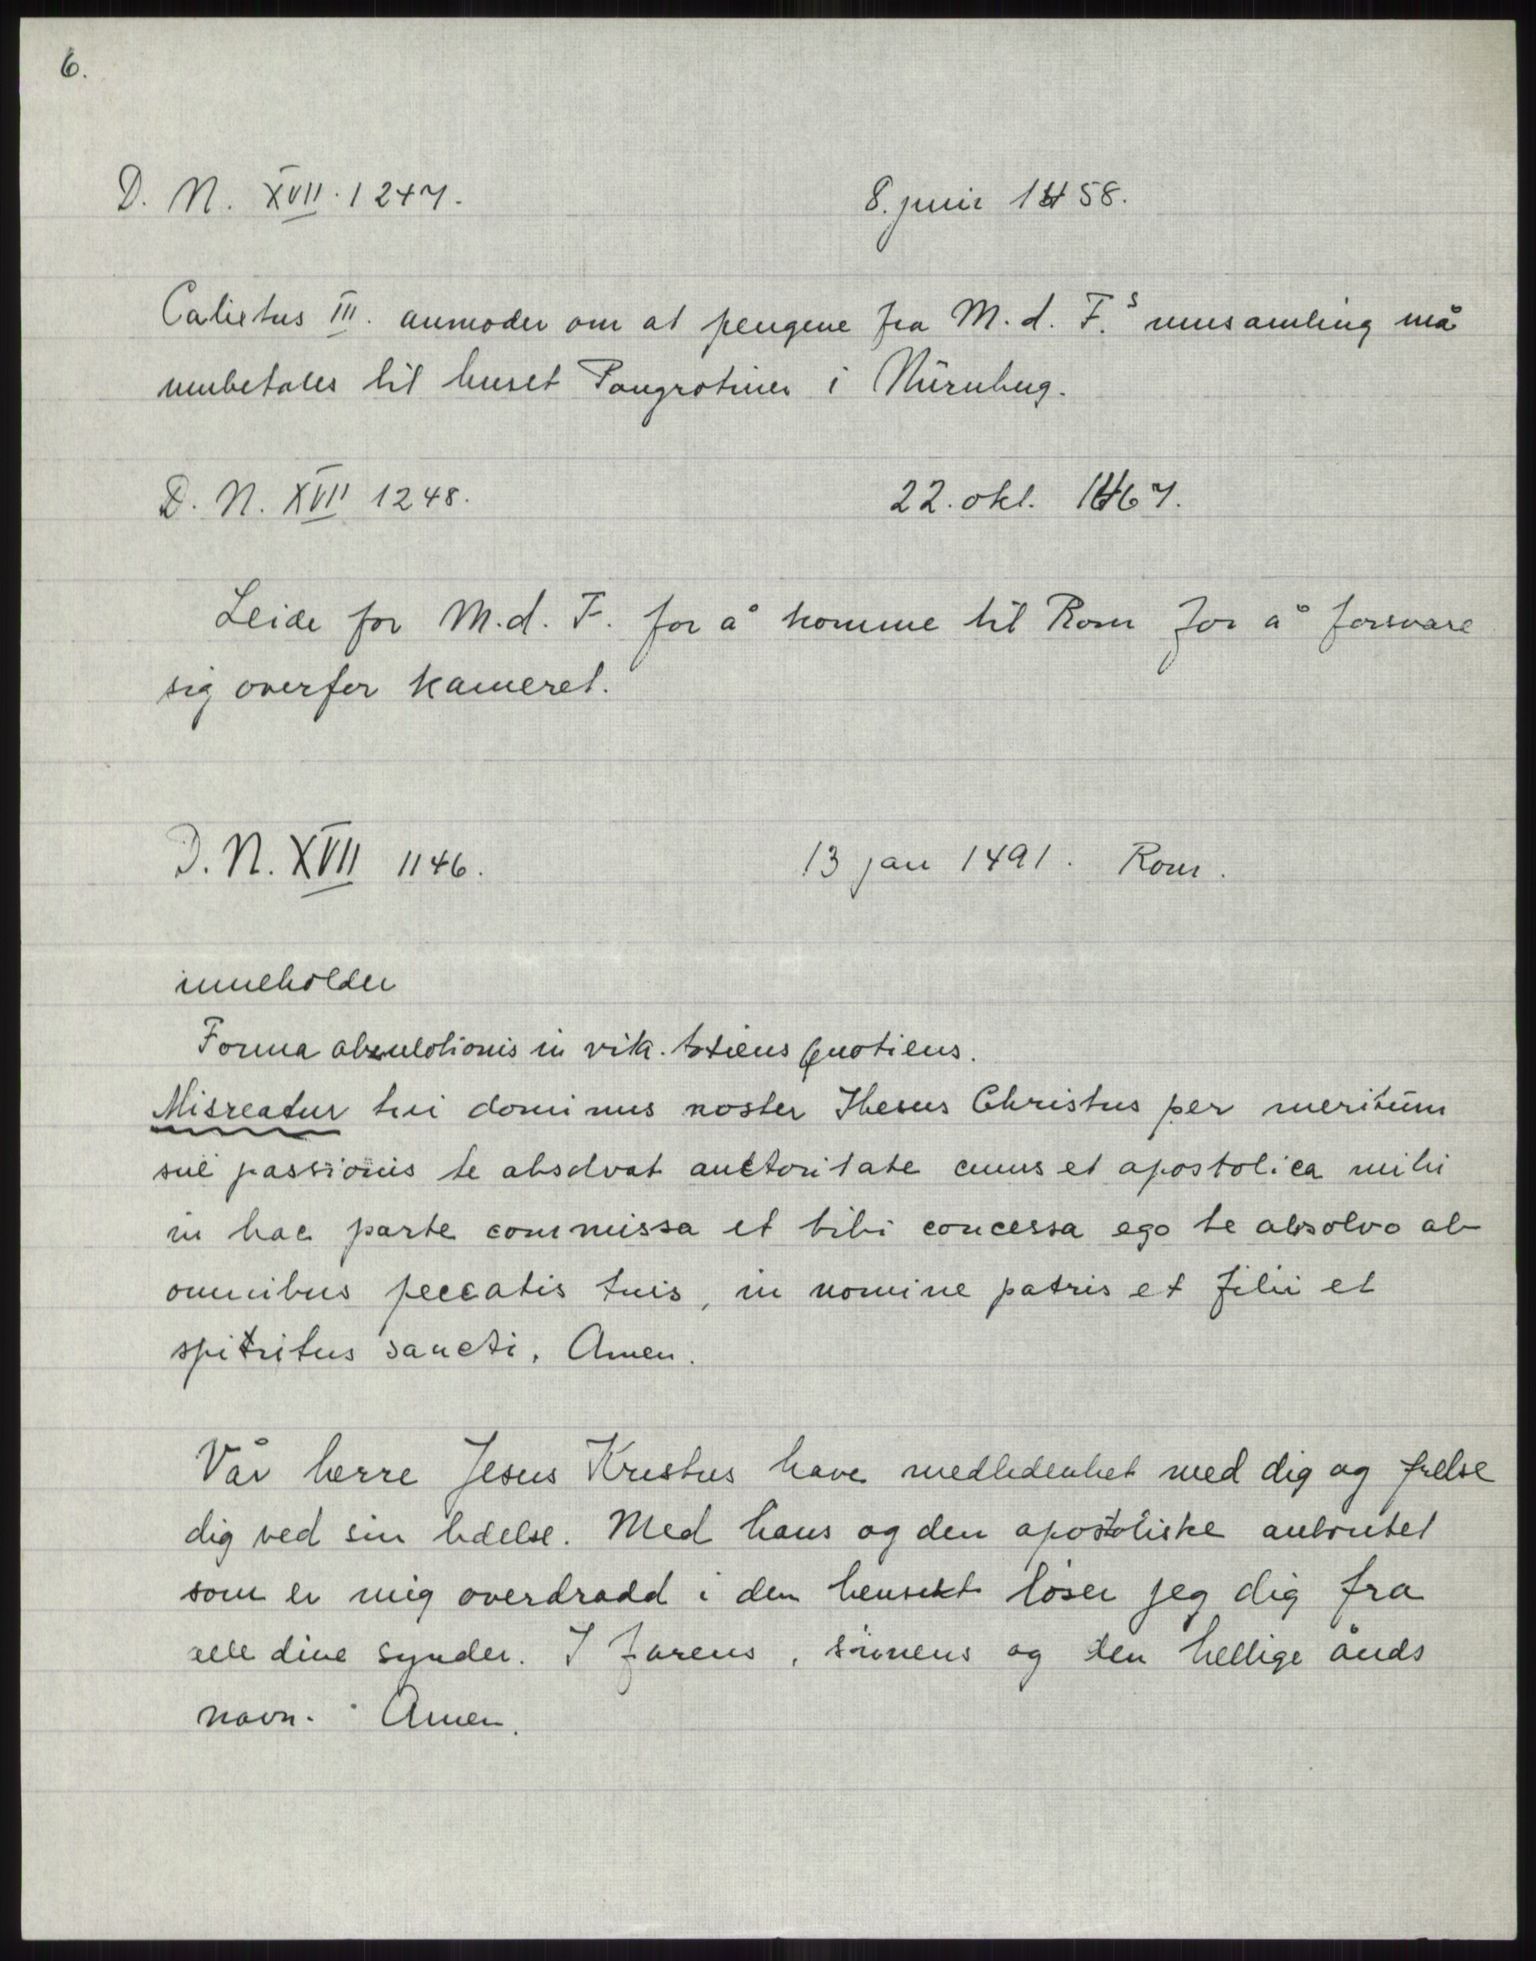 6.
D. N. XVII. 1247. 8. juni 1458.
Calixtus III. anmoder om at pengene fra M. d. F.s innsamling må
innbetales til huset i Nürnberg.
D. N. XVII 1248. 22. okt. 1467.
Leide for M. d. F. for å komme til Rom for å forsvare
sig overfor kameret.
D. N. XVII 1146. 13 jan 1491. Rom.
inneholder
Forma absulotionis in vita. totiens quotiens.
Misreatur tui dominus noster Ihesus Christus per meritum
sue passionis te absolvat auctoritate cuius et apostolica mihi
in hac parte commissa et tibi concessa ego te absolvo ab
omnibus peccatis tuis, in nomine patris et filii et
spiritus sancti. Amen.
Vår herre Jesus Kristus have medlidenhet med dig og frelse
dig ved sin lidelse. Med hans og den apostoliske autoritet
som er mig overdradd i den hensikt løser jeg dig fra
alle dine synder. I farens, sønnens og den hellige ånds
navn. Amen.